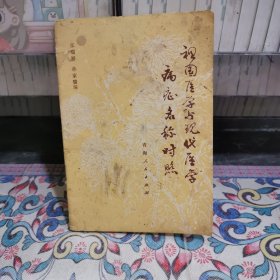 祖国医学与现代医学
病症名称对照
青海人民出版社